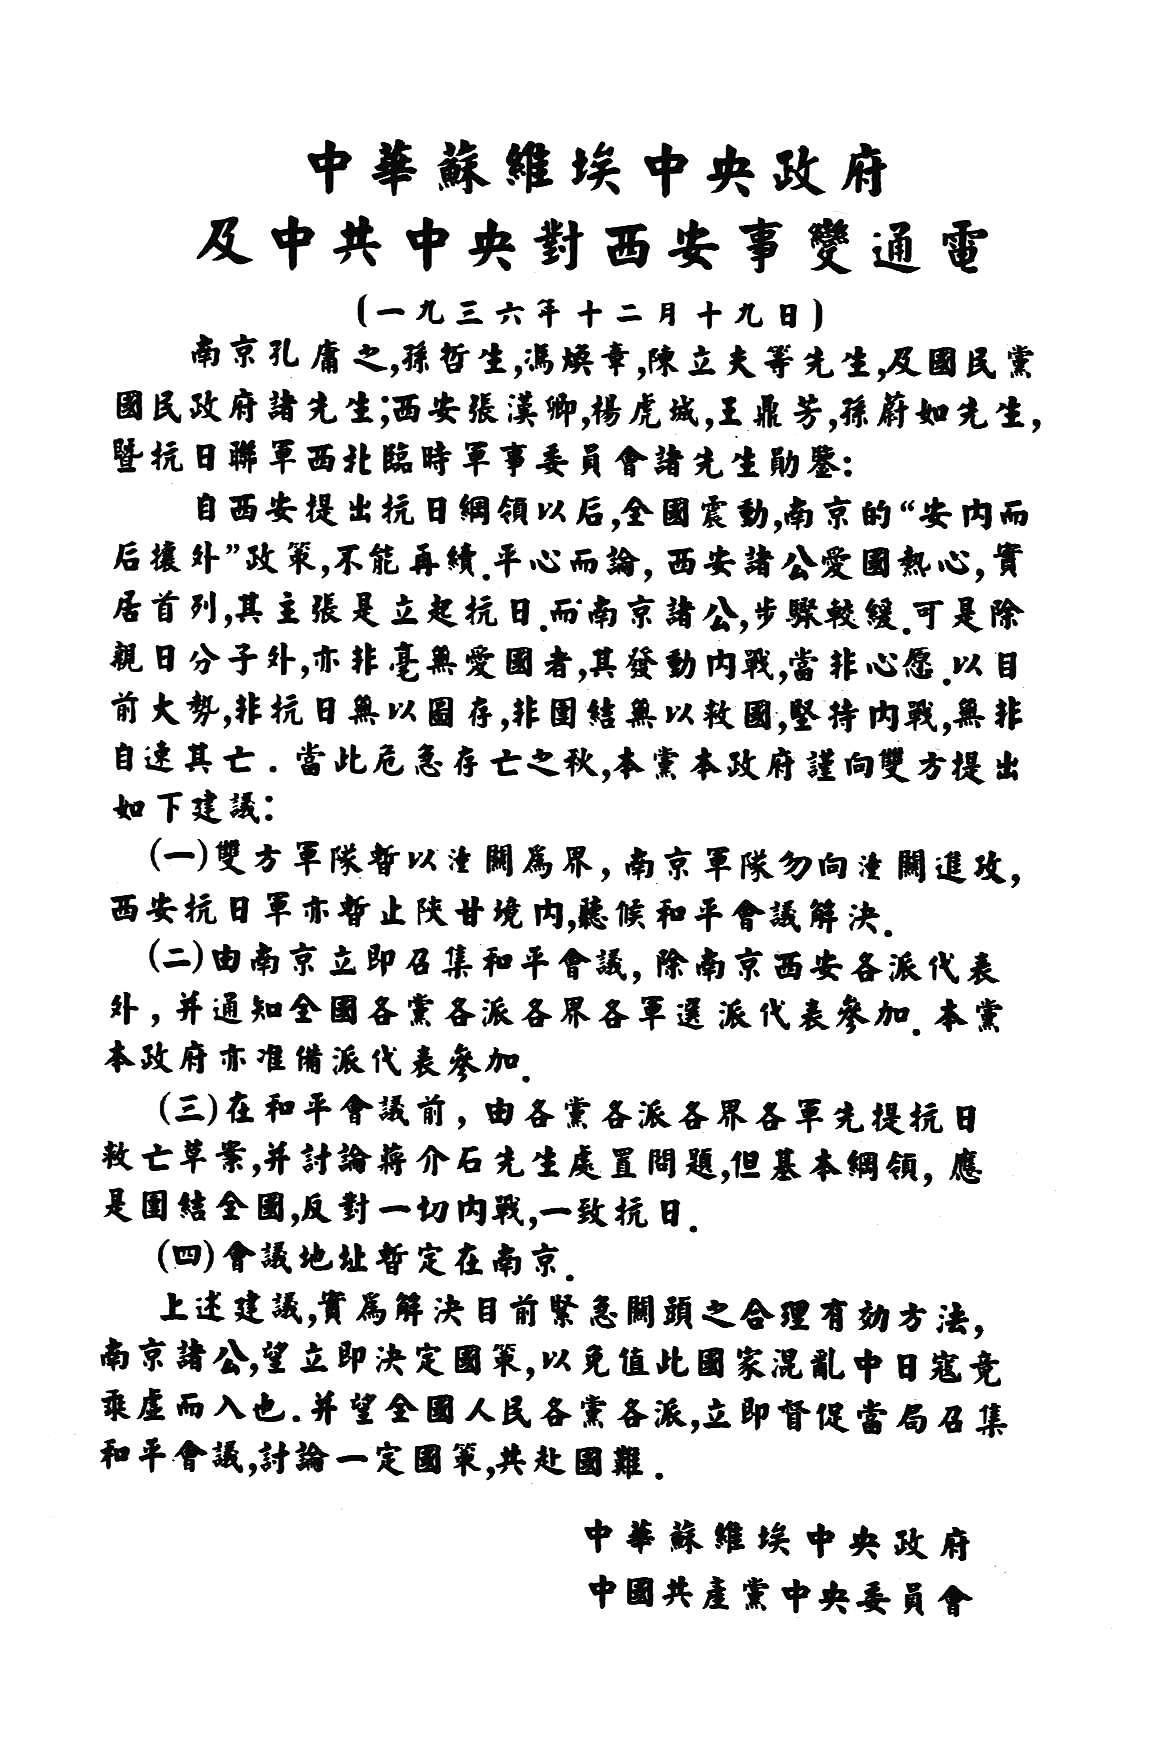 中華蘇維埃中央政府
及中共中央對西安事變通電
(一九三六年十二月十九日)
南京孔庸之,孫哲生,馮焕章,陳立夫等先生,及國民黨
國民政府諸先生;西安張漢卿,楊虎城,王鼎芳,孫蔚如先生,
暨抗日聯軍西北臨時軍事委員會諸先生勛鑒:
自西安提出抗日綱領以后,全國震動,南京的“安内而
后攘外”政策,不能再續.平心而論,西安諸公愛國熱心,實
居首列,其主張是立起抗日.而南京諸公,步驟較緩.可是除
親日分子外,亦非毫無愛國者,其發動内戰,當非心愿.以目
前大勢,非抗日無以圖存,非團結無以救國,堅持内戰,無非
自速其亡.當此危急存亡之秋,本黨本政府謹向雙方提出
如下建議:
(一)雙方軍隊暫以潼關爲界,南京軍隊勿向潼關進攻,
西安抗日軍亦暫止陝甘境内,聽候和平會議解決.
(二)由南京立即召集和平會議,除南京西安各派代表
外,并通知全國各黨各派各界各軍選派代表參加.本黨
本政府亦准備派代表參加.
(三)在和平會議前,由各黨各派各界各軍先提抗日
救亡草案,并討論蔣介石先生處置問題,但基本綱領,應
是團結全國,反對一切内戰,一致抗日.
(四)會議地址暫定在南京.
上述建議,實爲解決目前緊急關頭之合理有効方法,
南京諸公,望立即決定國策,以免值此國家混亂中日寇竟
乘虛而入也.并望全國人民各黨各派,立即督促當局召集
和平會議,討論一定國策,共赴國難.
中華蘇維埃中央政府
中國共產黨中央委員會